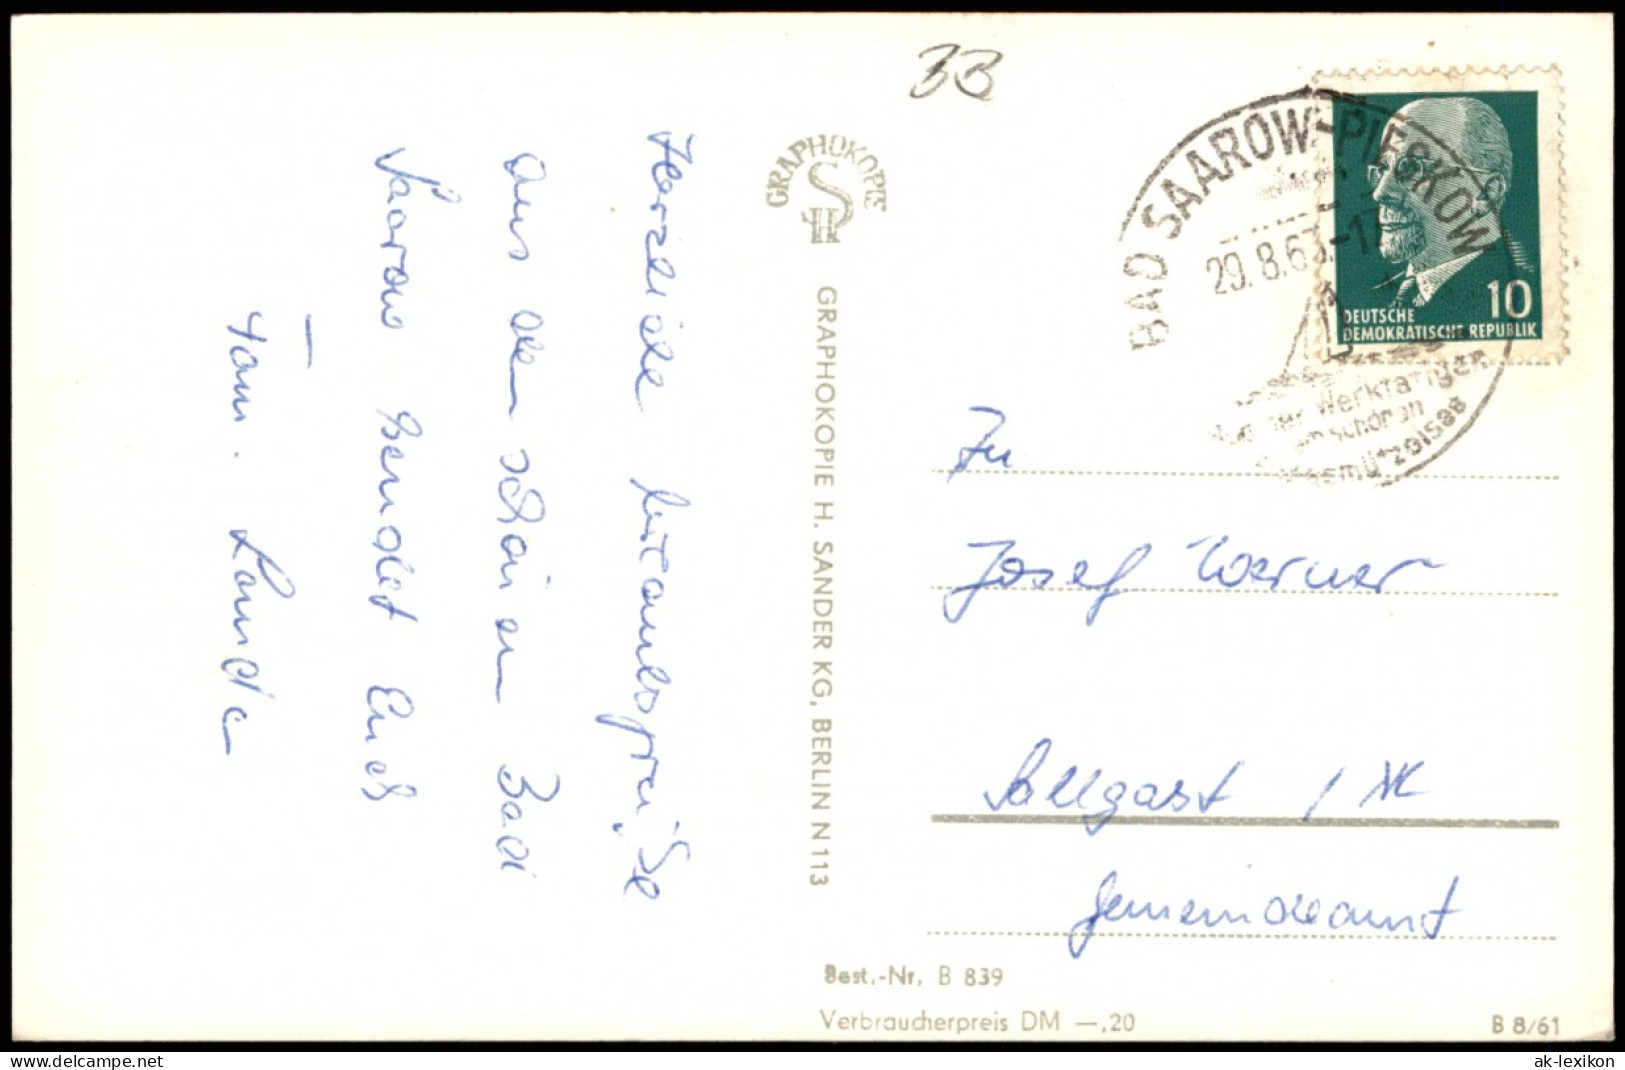 33
Herzliche Urlaubsgrüße
aus dem schönen Bad
Saarow sendet Euch
Fam.
GRAPHOKOPIE
GRAPHOKOPIE H. SANDER KG, BERLIN N 113
BAD SAAROW-PIESKOW
29.8.63.-17
der Werktätigen
am schönen
DEUTSCHE
DEMOKRATISCHE REPUBLIK
10
Josef Werner
Sallgast
Gemeindeamt
Best.-Nr. B 839
Verbraucherpreis DM —,20
B 8/61
hippostcard.com
ak-lexikon